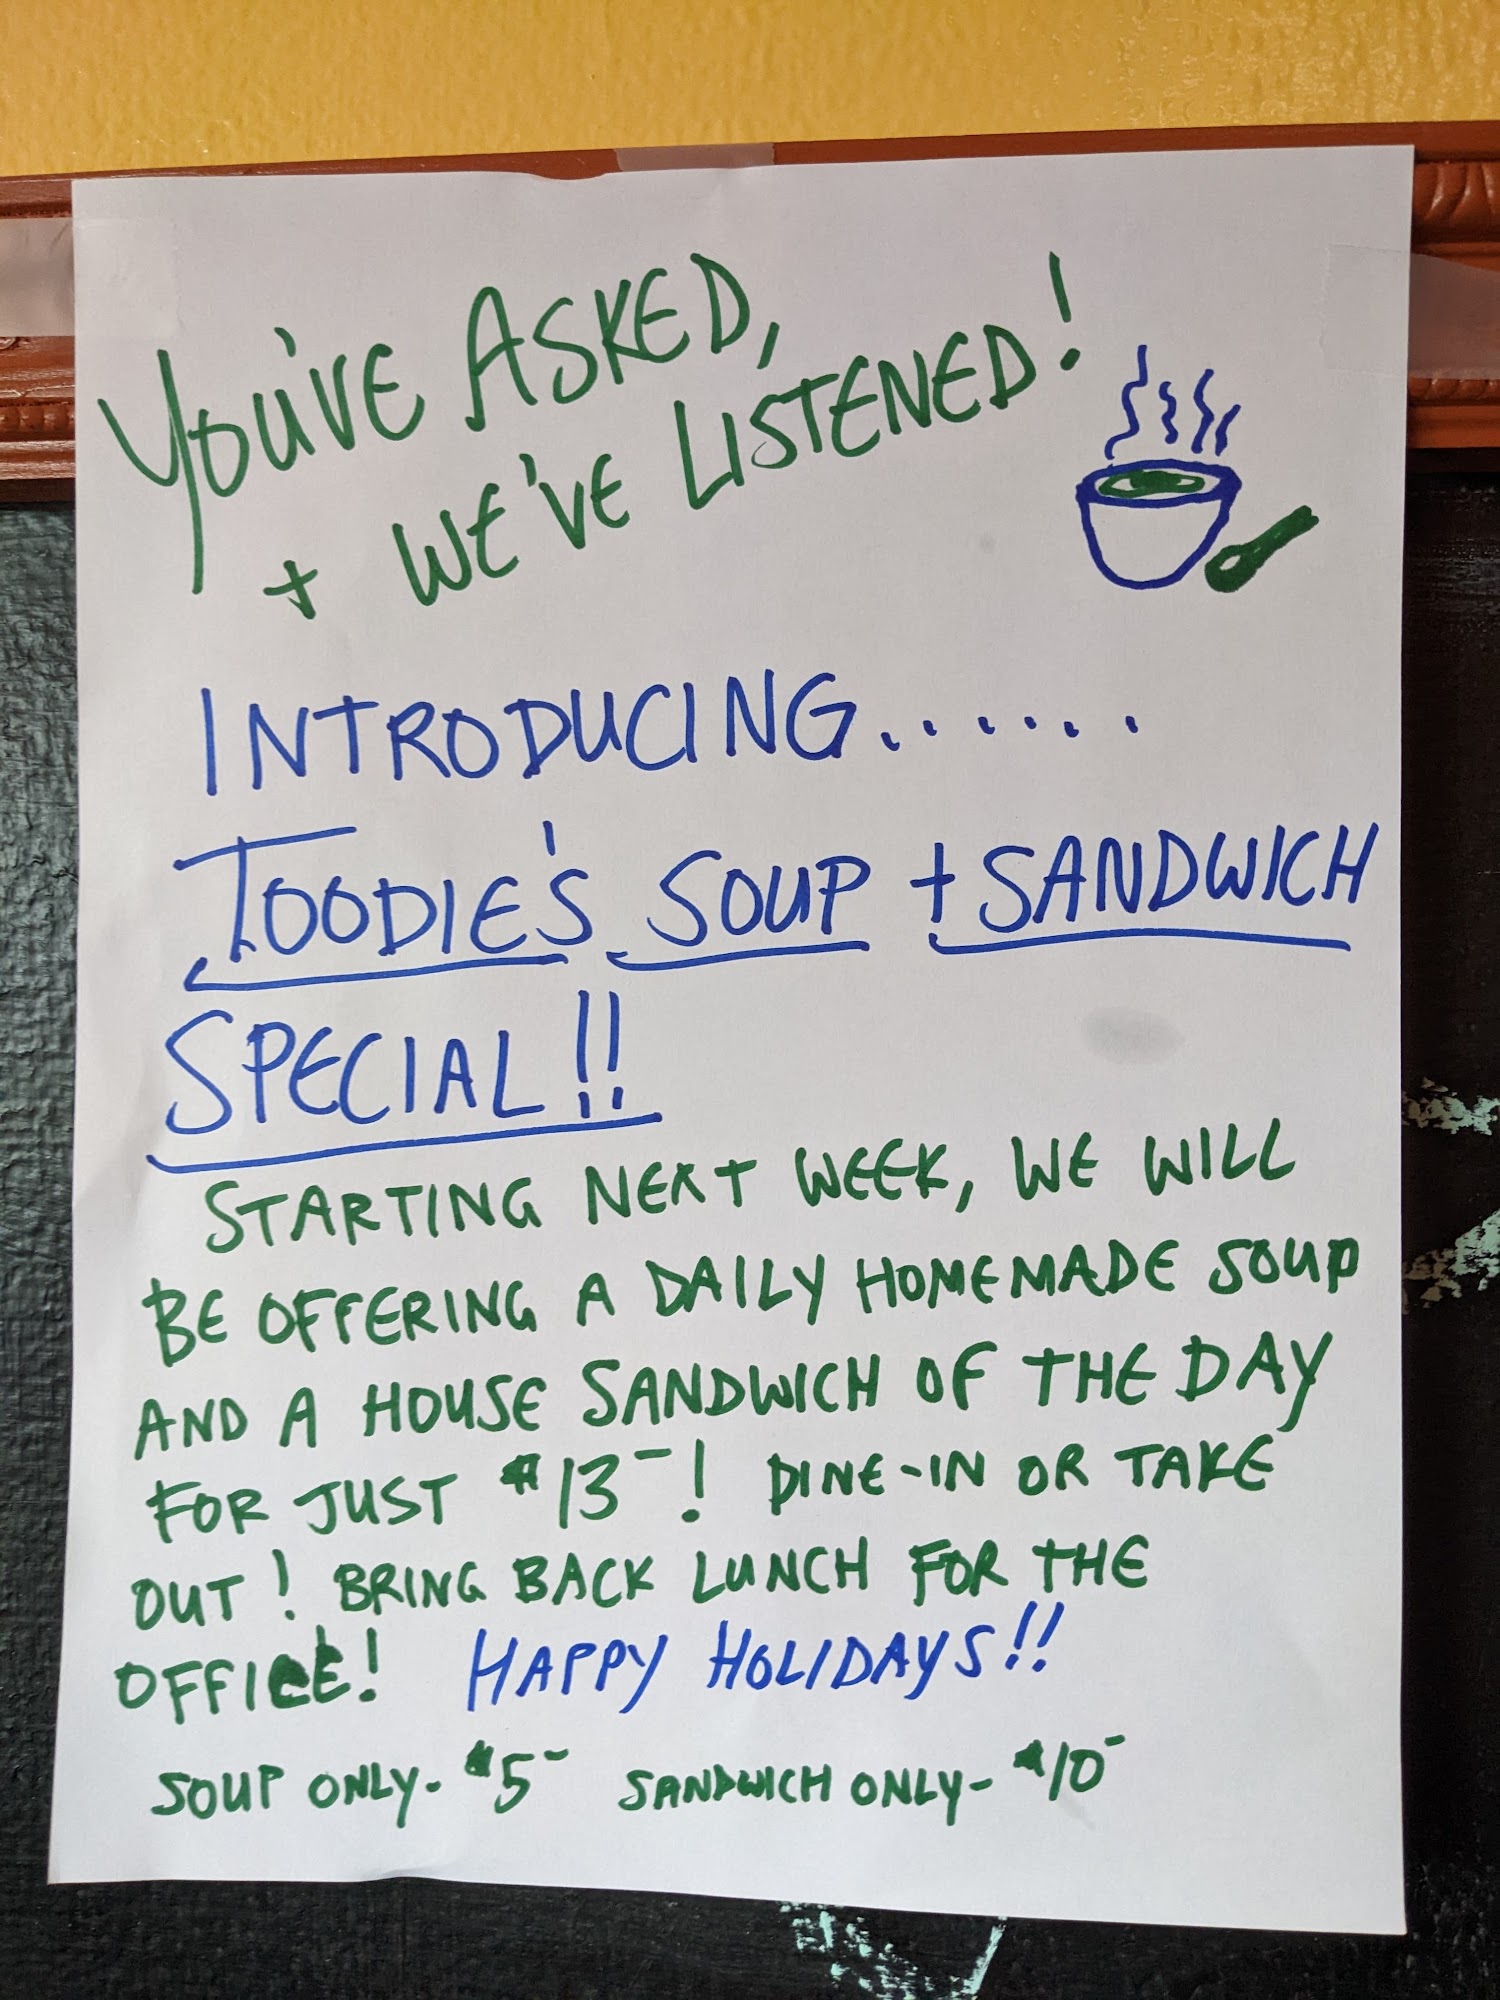 YOU'VE ASKED,
+ WE'VE LISTENED!
INTRODUCING......
TOODIE'S SOUP + SANDWICH
SPECIAL!!
STARTING NEXT WEEK, WE WILL
BE OFFERING A DAILY HOMEMADE SOUP
AND A HOUSE SANDWICH OF THE DAY
FOR JUST $13-! DINE-IN OR TAKE
OUT! BRING BACK LUNCH FOR THE
OFFICE! HAPPY HOLIDAYS!!
SOUP ONLY- $5- SANDWICH ONLY- $10-